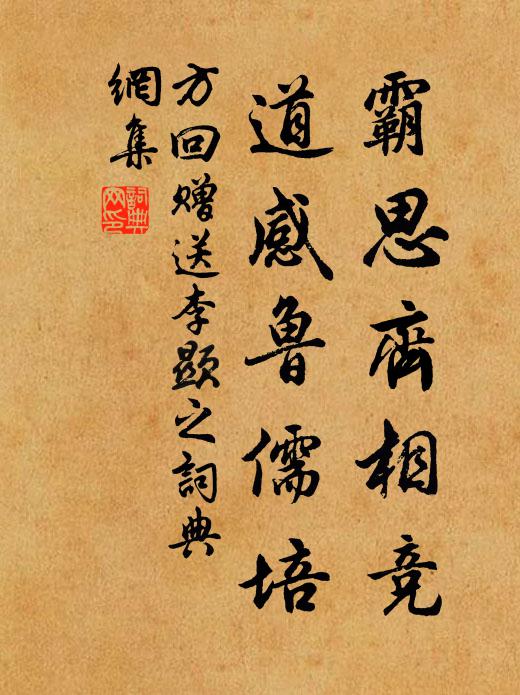 霸思齊相竞
道感鲁儒培
方回赠送李顯之詞典
網集
詞典
网印